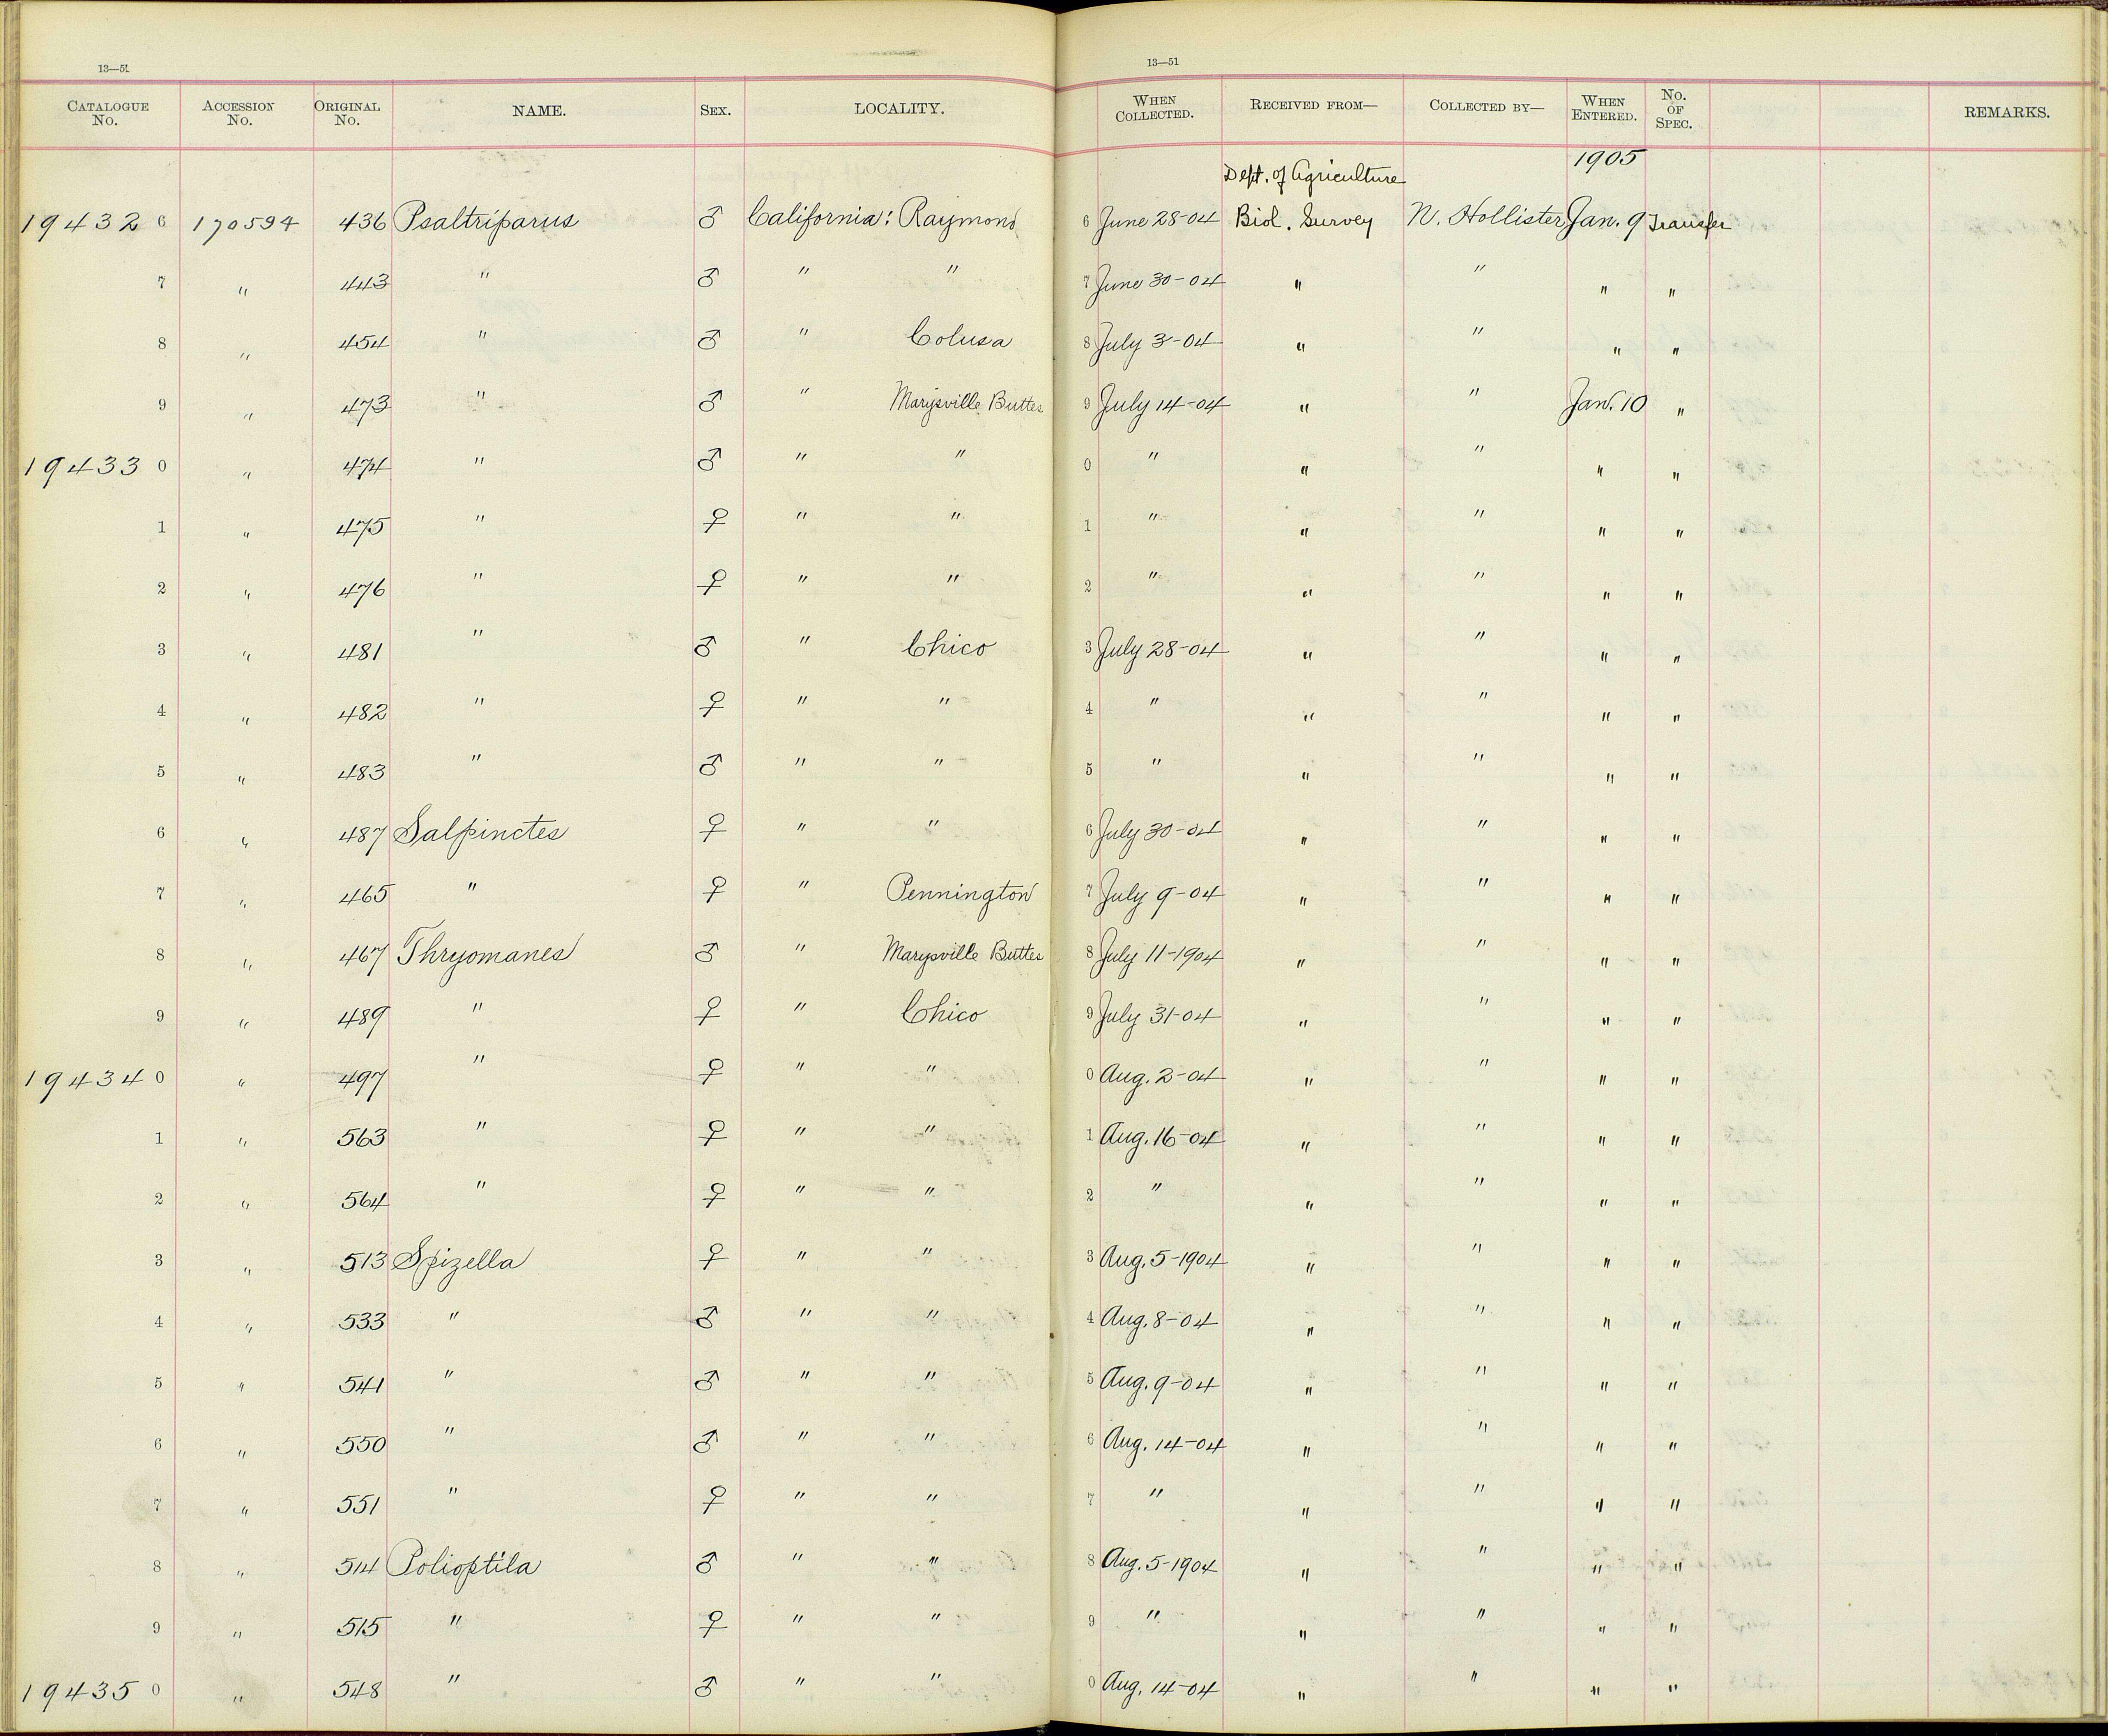 13—51
13—51
CATALOGUE No. ACCESSION No. ORIGINAL No. NAME. SEX. LOCALITY. WHEN COLLECTED. RECEIVED FROM— COLLECTED BY— WHEN ENTERED. No. OF SPEC. REMARKS.
1905
Dept. of Agriculture
19432 6 170594 436 Psaltriparus ♂ California: Raymond 6 June 28-04 Biol. Survey N. Hollister Jan. 9 Transfer
7 " 443 " ♂ " " 7 June 30-04 " " " "
8 " 454 " ♂ " Colusa 8 July 3-04 " " " "
9 " 473 " ♂ " Marysville Buttes 9 July 14-04 " " Jan. 10 "
19433 0 " 474 " ♂ " " 0 " " " " "
1 " 475 " ♀ " " 1 " " " " "
2 " 476 " ♀ " " 2 " " " " "
3 " 481 " ♂ " Chico 3 July 28-04 " " " "
4 " 482 " ♀ " " 4 " " " " "
5 " 483 " ♂ " " 5 " " " " "
6 " 487 Salpinctes ♀ " " 6 July 30-04 " " " "
7 " 465 " ♀ " Pennington 7 July 9-04 " " " "
8 " 467 Thryomanes ♂ " Marysville Buttes 8 July 11-1904 " " " "
9 " 489 " ♀ " Chico 9 July 31-04 " " " "
19434 0 " 497 " ♀ " " 0 Aug. 2-04 " " " "
1 " 563 " ♀ " " 1 Aug. 16-04 " " " "
2 " 564 " ♀ " " 2 " " " " "
3 " 513 Spizella ♀ " " 3 Aug. 5-1904 " " " "
4 " 533 " ♂ " " 4 Aug. 8-04 " " " "
5 " 541 " ♂ " " 5 Aug. 9-04 " " " "
6 " 550 " ♂ " " 6 Aug. 14-04 " " " "
7 " 551 " ♀ " " 7 " " " " "
8 " 514 Polioptila ♂ " " 8 Aug. 5-1904 " " " "
9 " 515 " ♀ " " 9 " " " " "
19435 0 " 548 " ♂ " " 0 Aug. 14-04 " " " "